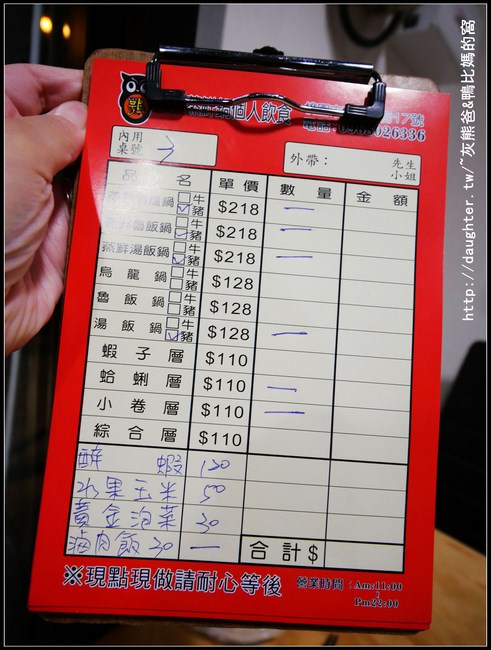 個人飲食
026336
內用
桌號 
外帶： 先生
小姐
品 名 單價 數量 金額
牛
豬 $218 一
飯鍋 牛
豬 $218 一
蒸鮮湯飯鍋 牛
豬 $218 一
烏龍鍋 牛
豬 $128
魯飯鍋 牛
豬 $128
湯飯鍋 牛
豬 $128 一
蝦子層 $110
蛤蜊層 $110 一
小卷層 $110 一
綜合層 $110
醉蝦 120
水果玉米 50
黃金泡菜 30
滷肉飯 30 一
合計$
※現點現做請耐心等後
營業時間：Am:11:00
Pm22:00
http://daughter.tw/~灰熊爸&鴨比媽的窩